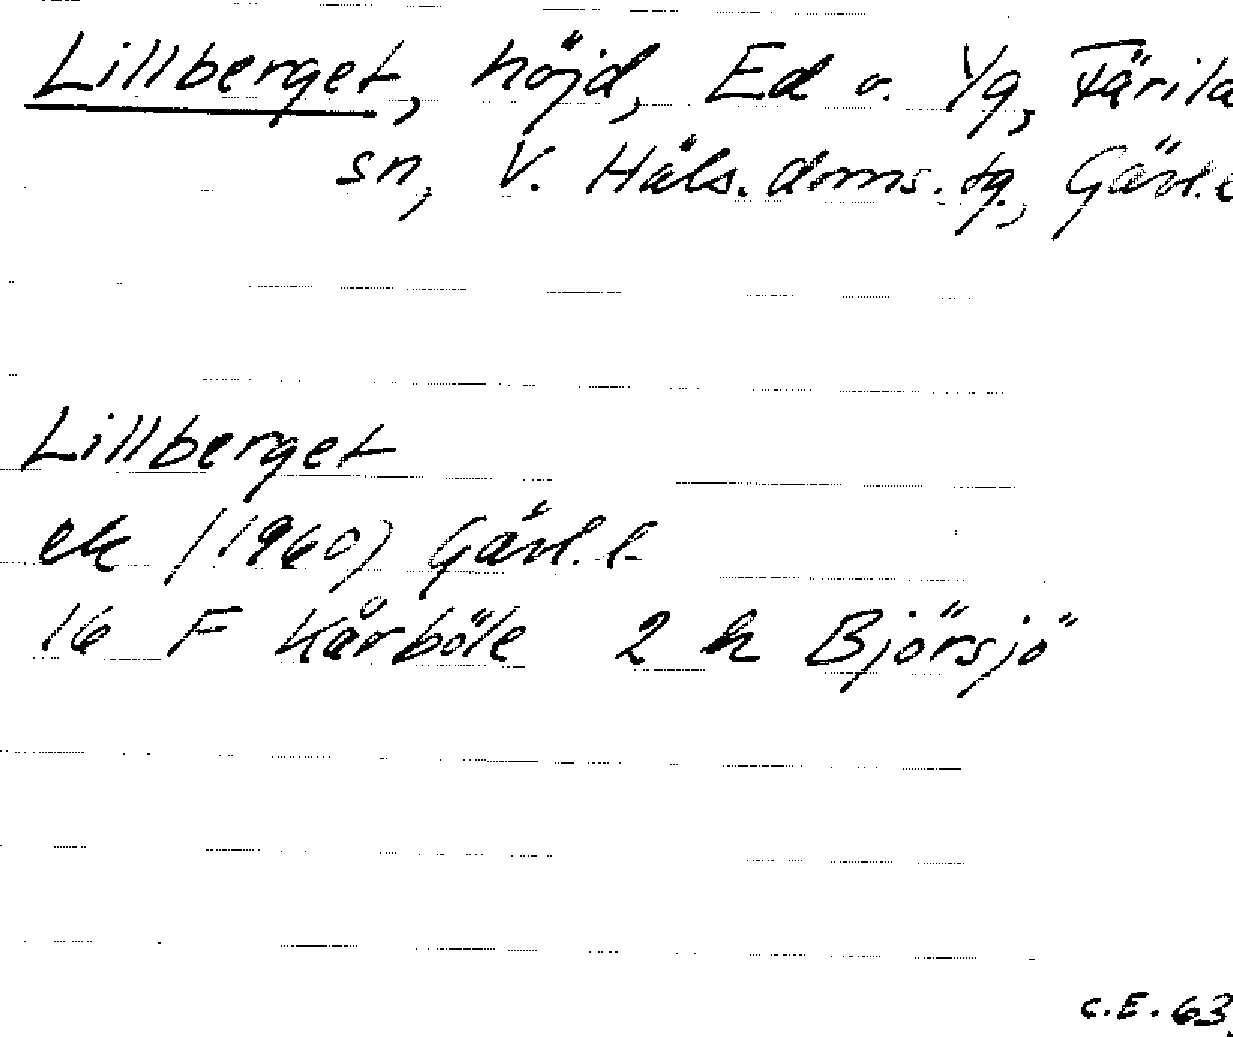 Lillberget, höjd, Ed o. Yg, Färila
sn, V. Häls. doms. tg., Gävl. l
Lillberget
ek (1960) Gävl. l.
16 F Kårböle 2 h Björsjö
C.E. 63.